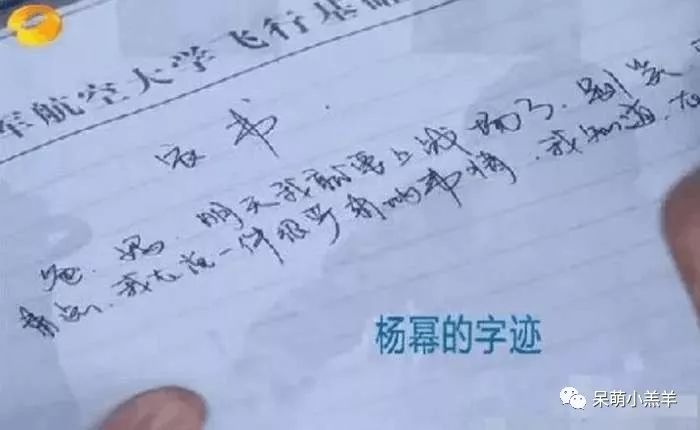 军航空大学飞行基
家书
爸、妈、明天我就要上战场了、别笑
我在说一件很严肃的事情、我知道、在
杨幂的字迹
呆萌小羔羊